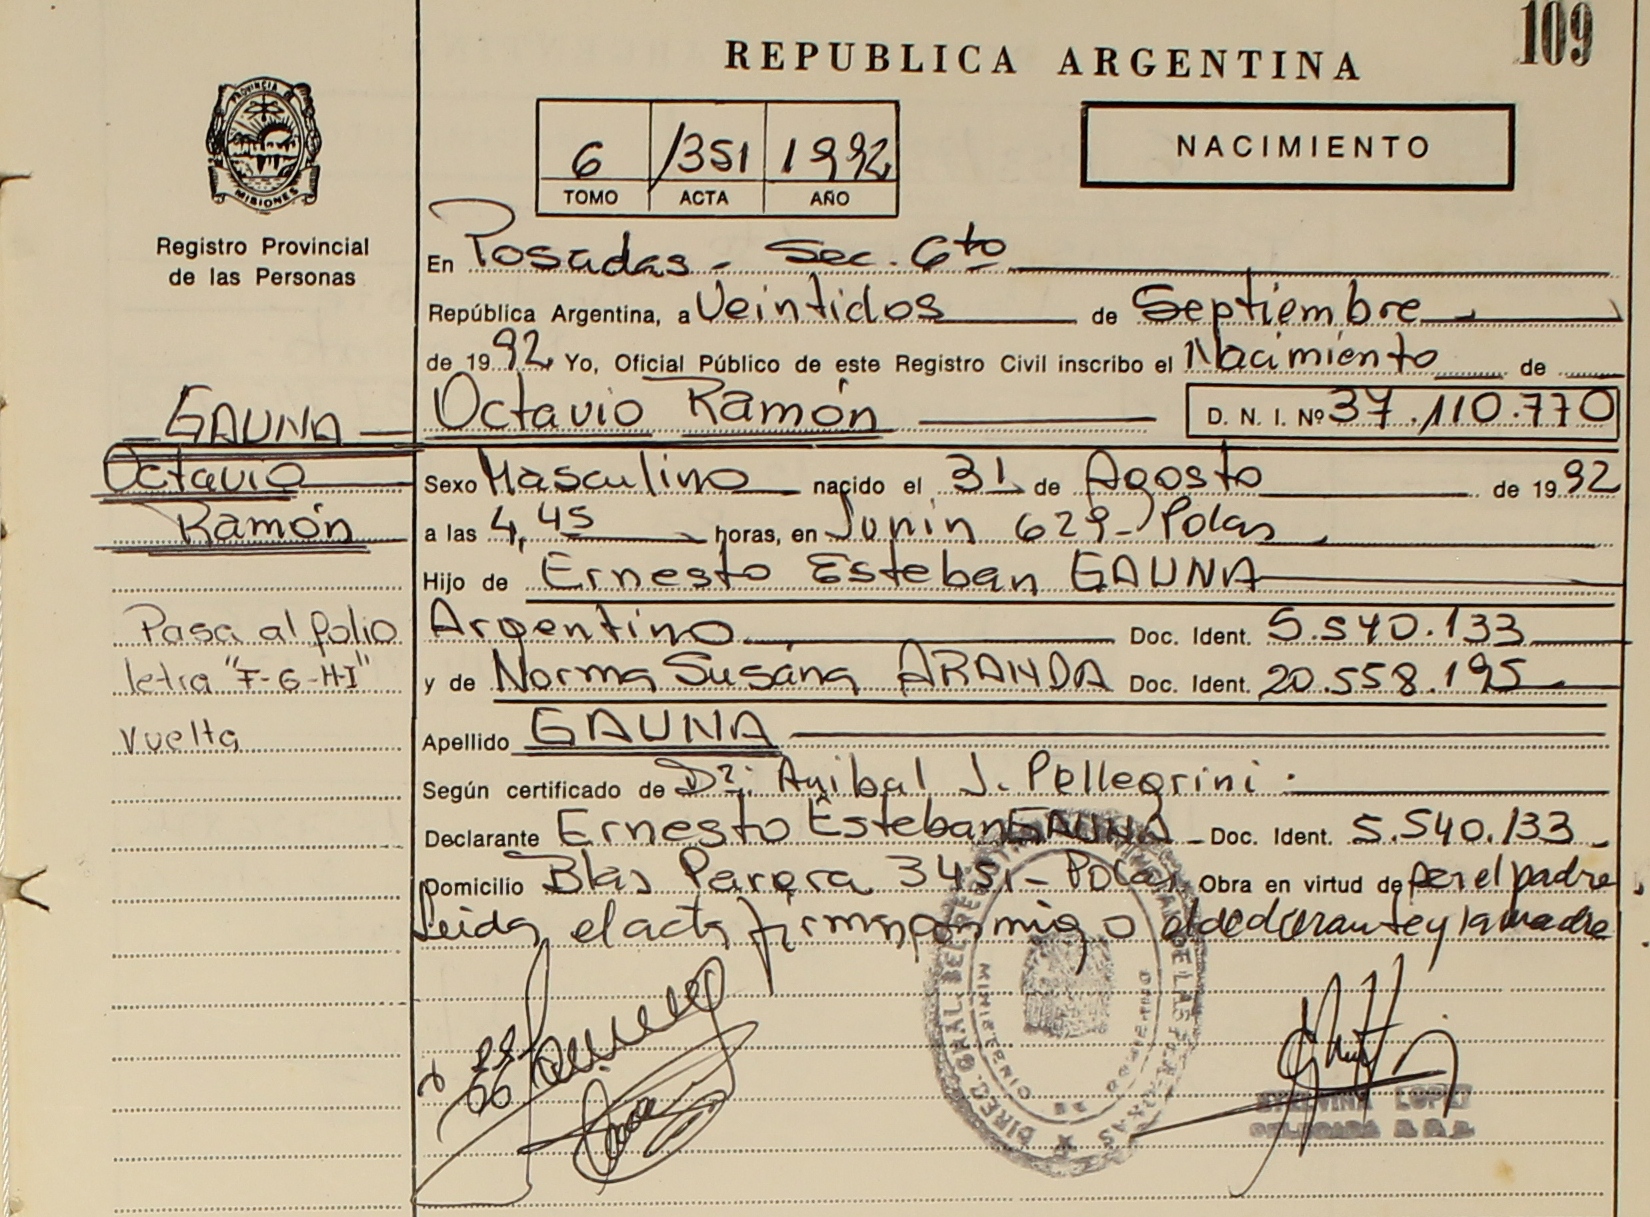 109
REPUBLICA ARGENTINA
PROVINCIA
MISIONES
Registro Provincial
de las Personas
6 /351 1992
TOMO ACTA AÑO
NACIMIENTO
En Posadas - Sec. 6to
República Argentina, a Veintidos de Septiembre
de 1992 Yo, Oficial Público de este Registro Civil inscribo el Nacimiento de
Octavio Ramón D. N. I. Nº 37.110.770
GAUNA
Octavio
Ramón
Sexo Masculino nacido el 31 de Agosto de 1992
a las 4,45 horas, en Junin 629 - Pdas
Hijo de Ernesto Esteban GAUNA
Argentino Doc. Ident. 5.540.133
y de Norma Susana ARANDA Doc. Ident. 20.558.195
Apellido GAUNA
Según certificado de Dr: Anibal J. Pellegrini
Declarante Ernesto Esteban GAUNA - Doc. Ident. 5.540.133
Domicilio Blas Parera 3451 - Pdas Obra en virtud de ser el padre
Leida el acta firman el declarante y la madre
Pasa al folio
letra "F-G-H-I"
Vuelta
LOPEZ